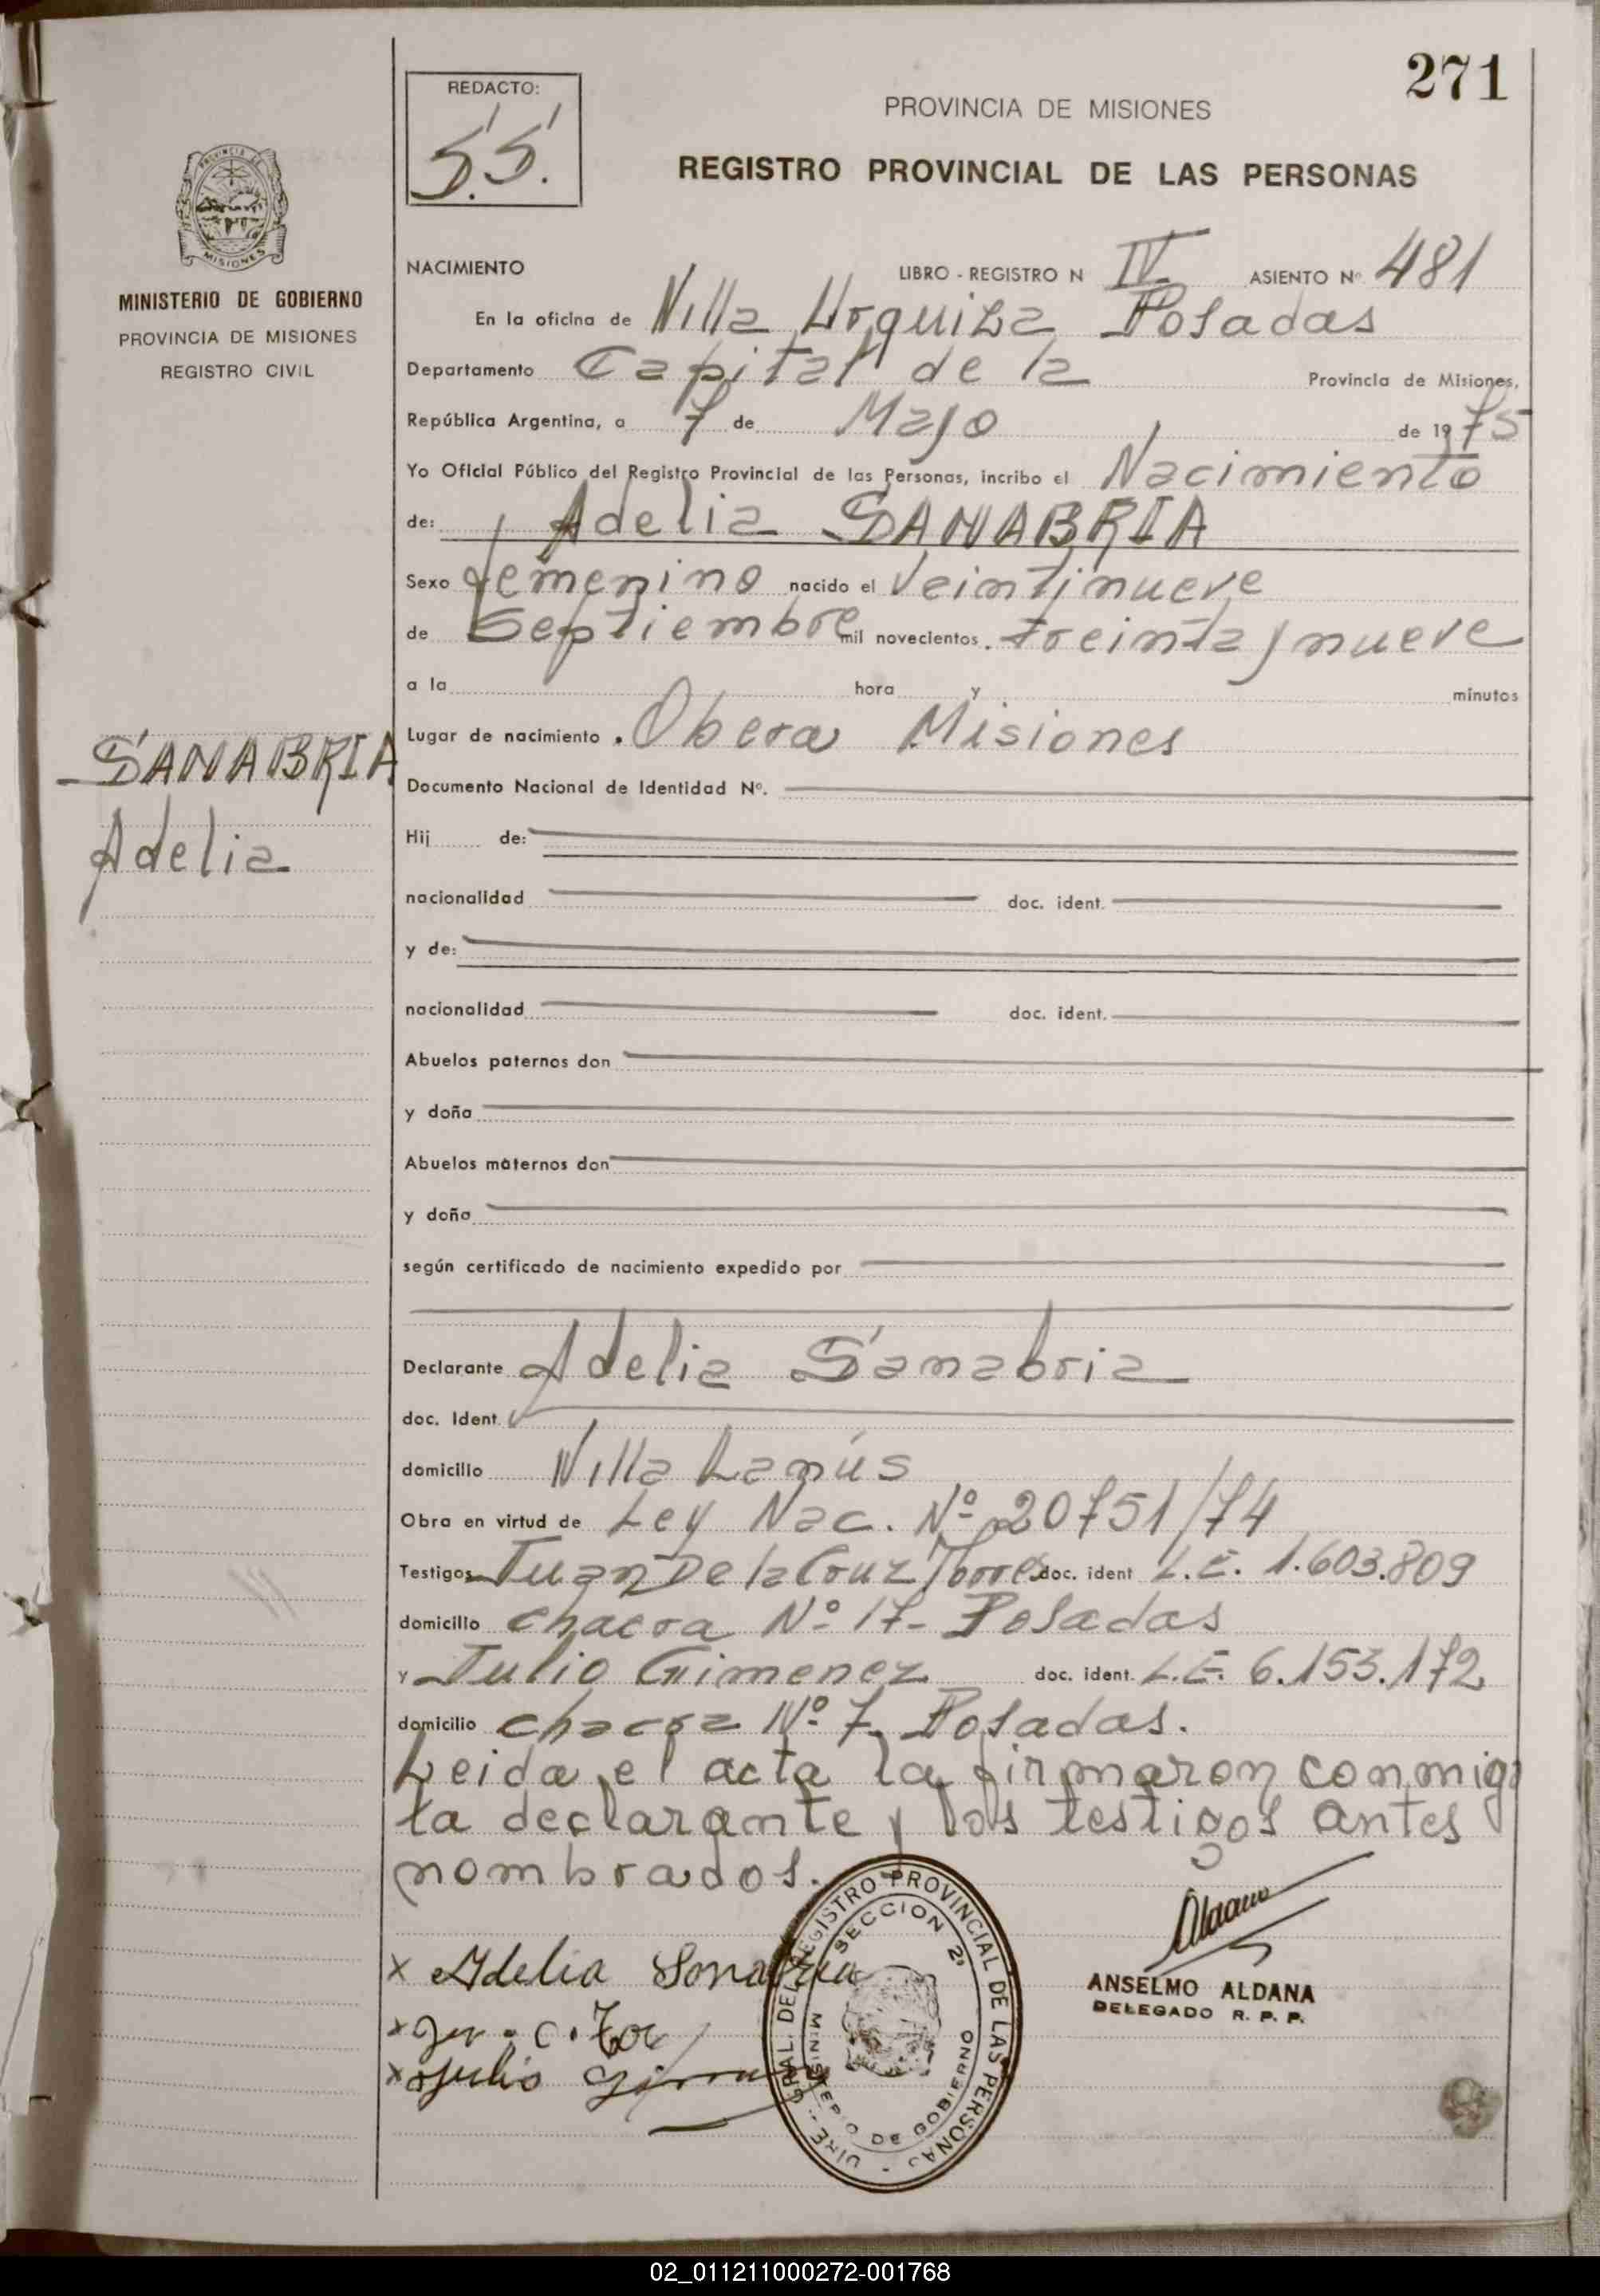 271
REDACTO:
S.S.
PROVINCIA DE MISIONES
REGISTRO PROVINCIAL DE LAS PERSONAS
MISIONES
MINISTERIO DE GOBIERNO
PROVINCIA DE MISIONES
REGISTRO CIVIL
NACIMIENTO LIBRO - REGISTRO N IV ASIENTO Nº 481
En la oficina de Villa Urquiza Posadas
Departamento Capital de la Provincia de Misiones,
República Argentina, a 7 de Mayo de 1975
Yo Oficial Público del Registro Provincial de las Personas, incribo el Nacimiento
de: Adelia SANABRIA
Sexo femenino nacido el Veintinueve
de Septiembre mil novecientos. treinta y nueve
a la hora y minutos
SANABRIA
Adelia
Lugar de nacimiento . Obera Misiones
Documento Nacional de Identidad Nº.
Hij de:
nacionalidad doc. ident.
y de:
nacionalidad doc. ident.
Abuelos paternos don
y doña
Abuelos maternos don
y doña
según certificado de nacimiento expedido por
Declarante Adelia Sanabria
doc. Ident
domicilio Villa Lanús
Obra en virtud de Ley Nac. Nº 20751/74
Testigos Juan De la Cruz Torres doc. ident L.E. 1.603.809
domicilio chacra Nº 17- Posadas
y Julio Gimenez doc. ident. L.E. 6.153.172
domicilio chacra Nº 7 Posadas.
Leida el acta la firmaron conmigo
la declarante y los testigos antes
nombrados.
x Adelia Sanabria
x Julio
DIRE. GRAL. DEL REGISTRO PROVINCIAL DE LAS PERSONAS -
SECCION 2ª
MINISTERIO DE GOBIERNO
Aldana
ANSELMO ALDANA
DELEGADO R. P. P.
02_011211000272-001768